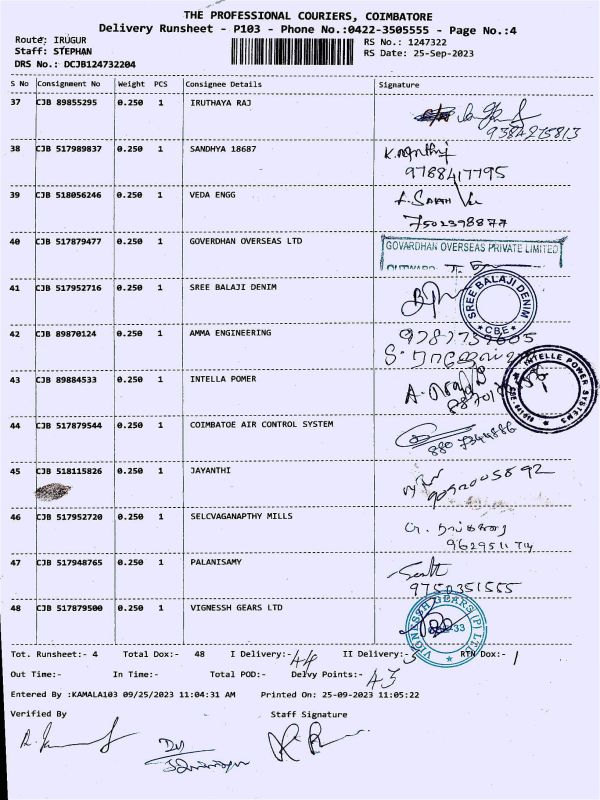 THE PROFESSIONAL COURIERS, COIMBATORE
Delivery Runsheet - P103 - Phone No.:0422-3505555 - Page No.:4
Route: IRUGUR RS No.: 1247322
Staff: STEPHAN RS Date: 25-Sep-2023
DRS No.: DCJB124732204
S No Consignment No Weight PCS Consignee Details Signature
37 CJB 89855295 0.250 1 IRUTHAYA RAJ
9384275813
38 CJB 517989837 0.250 1 SANDHYA 18687
9788417795
39 CJB 518056246 0.250 1 VEDA ENGG
7502398877
40 CJB 517879477 0.250 1 GOVERDHAN OVERSEAS LTD GOVARDHAN OVERSEAS PRIVATE LIMITED
OUTWARD
41 CJB 517952716 0.250 1 SREE BALAJI DENIM SREE BALAJI DENIM
CBE
42 CJB 89870124 0.250 1 AMMA ENGINEERING
43 CJB 89884533 0.250 1 INTELLA POMER INTELLE POWER SYSTEMS
44 CJB 517879544 0.250 1 COIMBATOE AIR CONTROL SYSTEM
45 CJB 518115826 0.250 1 JAYANTHI
46 CJB 517952720 0.250 1 SELCVAGANAPTHY MILLS
47 CJB 517948765 0.250 1 PALANISAMY
9750351555
48 CJB 517879500 0.250 1 VIGNESSH GEARS LTD VIGNESSH GEARS (P) LTD
Tot. Runsheet:- 4 Total Dox:- 48 I Delivery:- 44 II Delivery:- 3 RTN Dox:- 1
Out Time:- In Time:- Total POD:- Delvy Points:- 43
Entered By :KAMALA103 09/25/2023 11:04:31 AM Printed On: 25-09-2023 11:05:22
Verified By Staff Signature